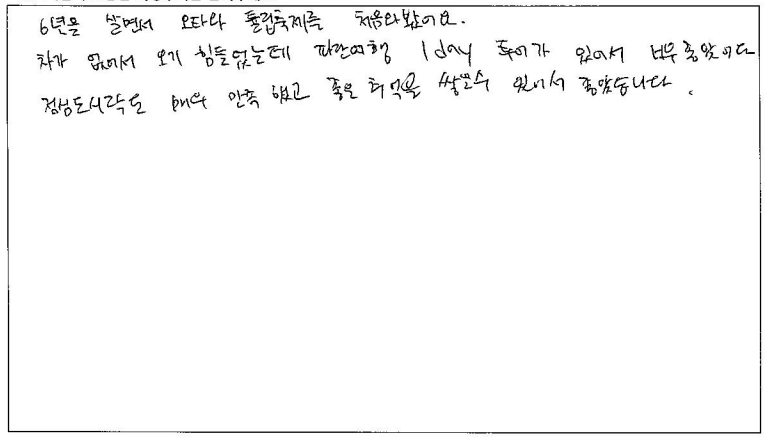 6년을 살면서 오타와 튤립축제를 처음와봤어요.
차가 없어서 오기 힘들었는데 파란여행 1day 투어가 있어서 너무좋았어요
점심도시락도 매우 만족했고 좋은 추억을 쌓을수 있어서 좋았습니다.